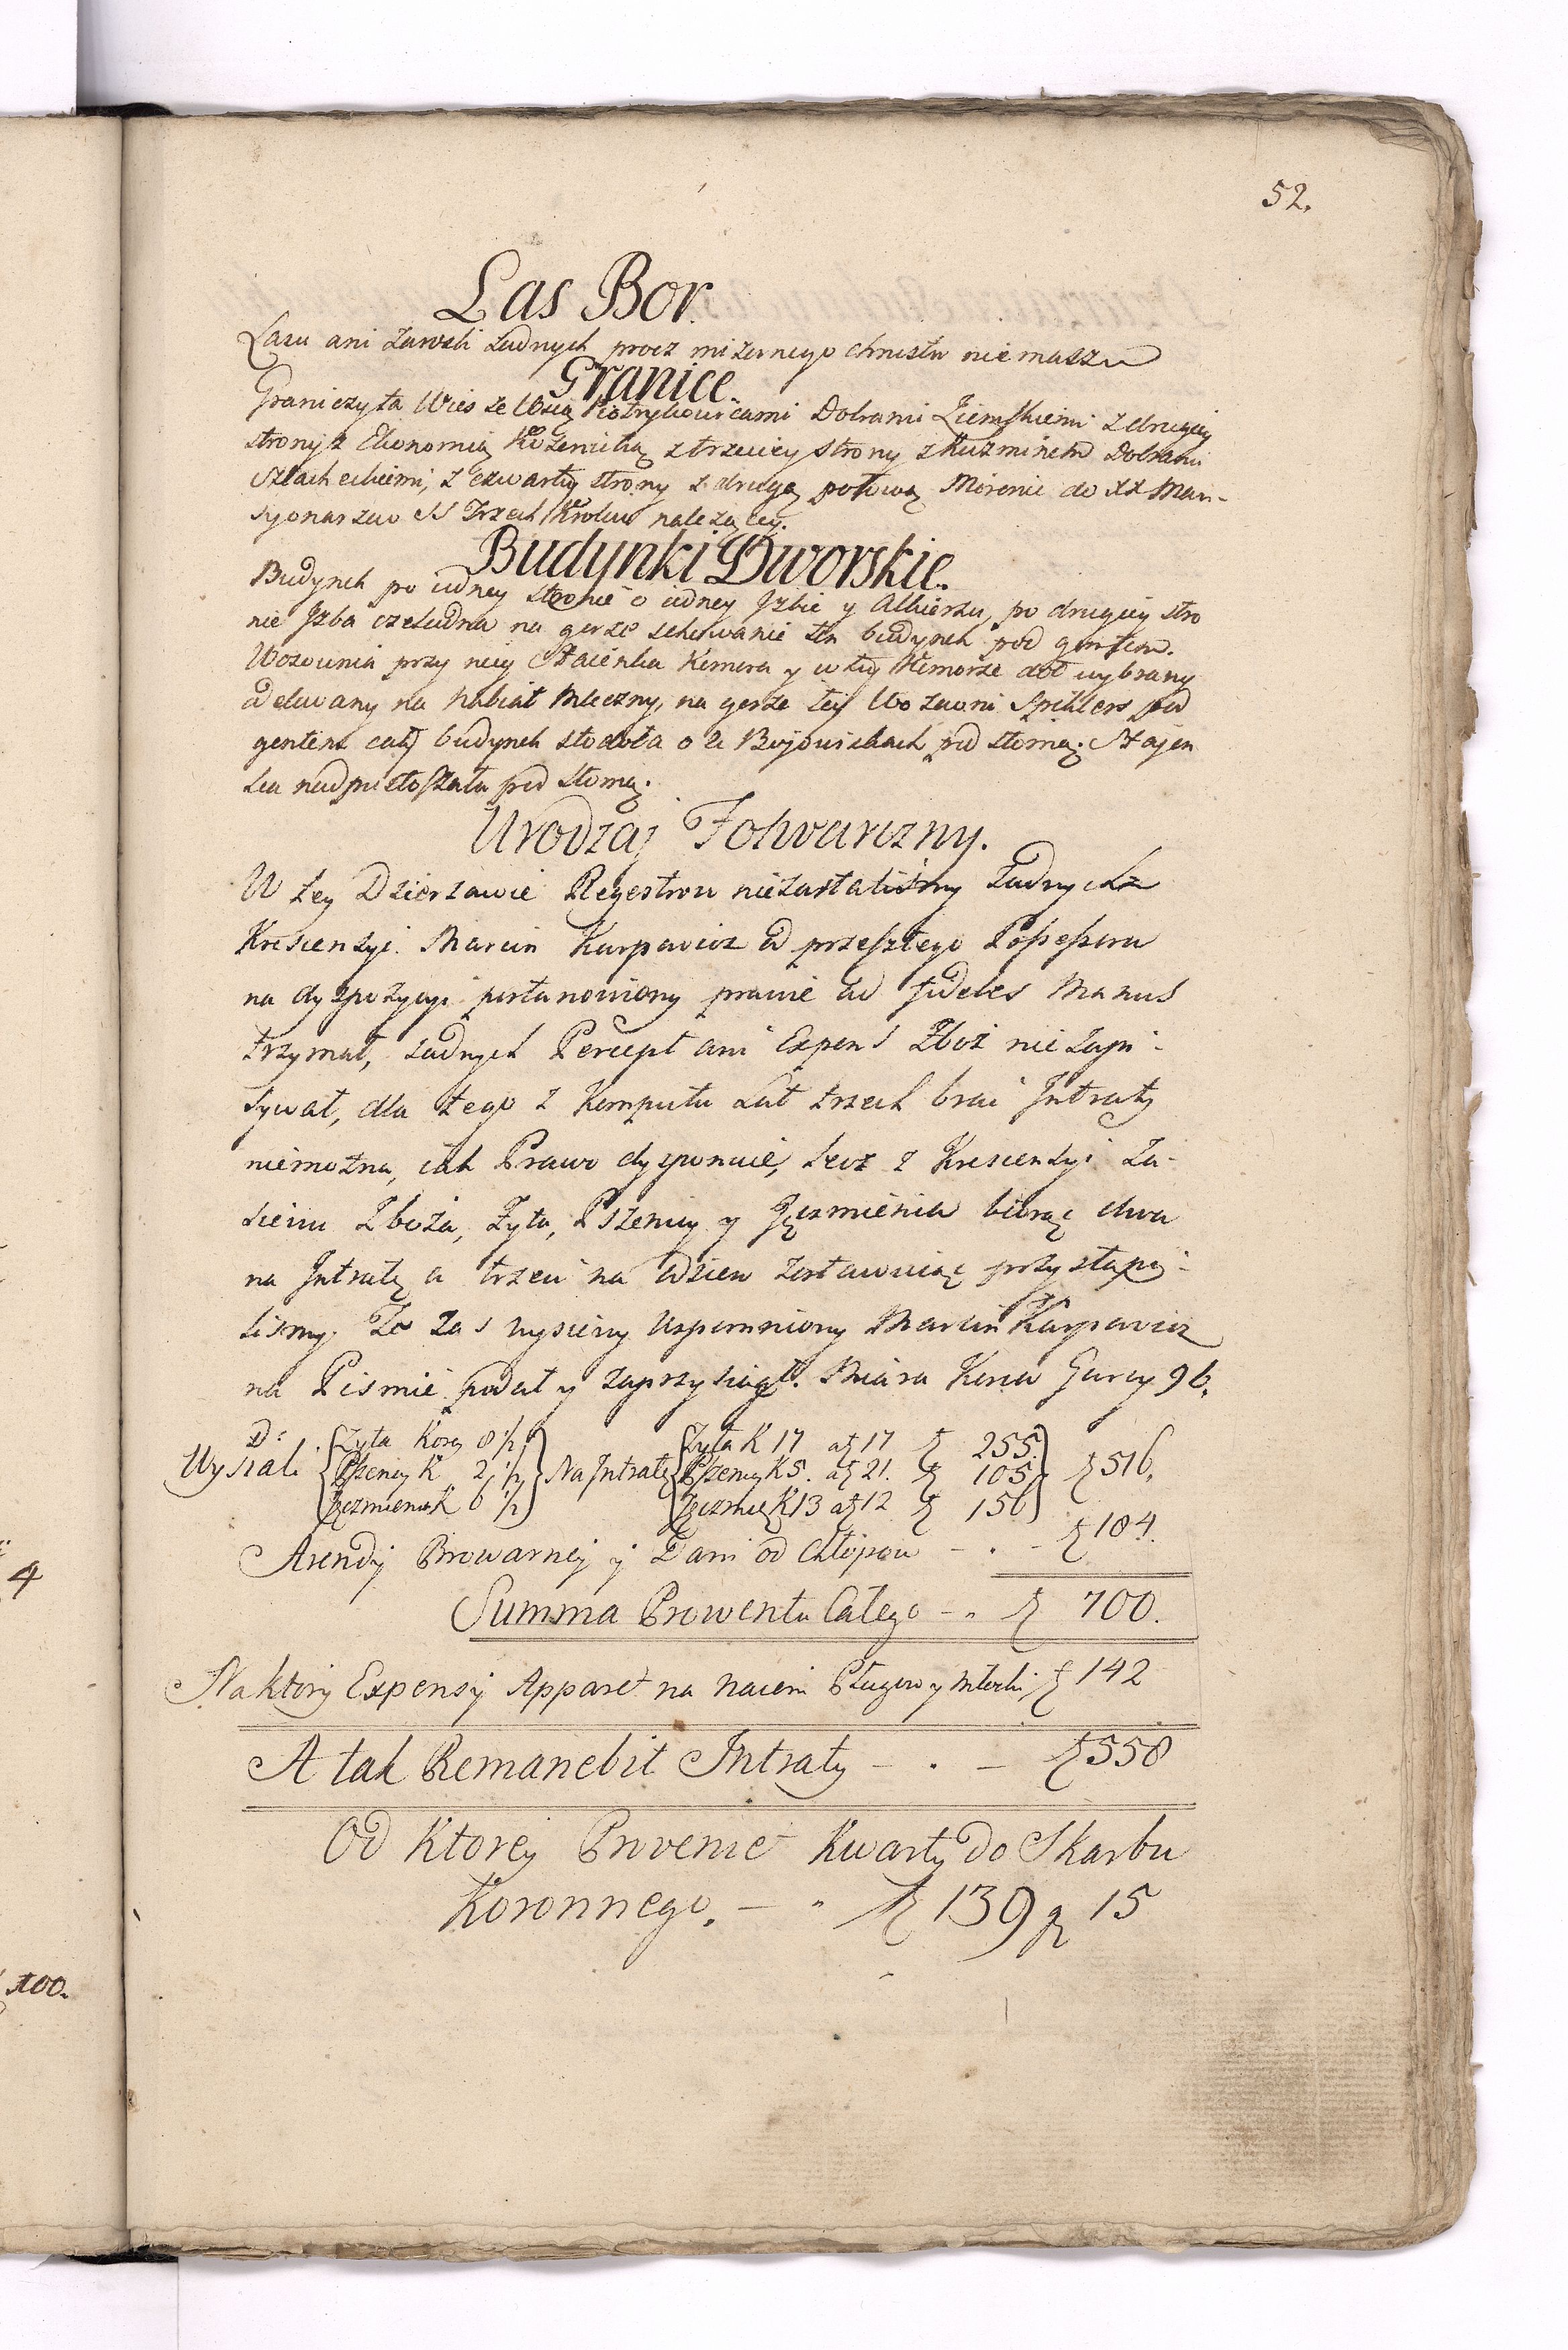 52.
Las Bor.
Lasu ani Zarosli żadnych procz mizernego chrustu niemasz
Granice.
Graniczy ta Wies ze Wsią Piotrykowicami Dobrami Ziemskiemi z drugiey
strony z Ekonomią Kozenicką z trzeciey strony z Kuzminem Dobrami
Szlacheckiemi, z czwartey strony z drugą połową Morenic do XX Man-
syonarzow SS Trzech Krolow należącey.
Budynki Dworskie.
Budynek po iedney stronie o iedney Izbie y Alkierzu, po drugiey stro
nie Izba czeladna na gorze schowanie ten budynek pod gontem.
Wozownia przy niey Staienka Komora y w tey Komorze doł wybrany
na Nabiał Mleczny, na gorze tey Wozowni Spichlerz pod
gontem cały budynek stodoła o 2 Bojowiskach pod słomą. Stajen
ka pod słomą.
Urodzaj Folwarczny.
W tey Dzierzawie Regestrow niezastalismy Żadnych
Krescensyi. Marcin Karpowicz od przeszłego Possessora
na dyspozycyi postanowiony prawie ad fideles Manus
trzymał, żadnych Percept ani Expens Zboż nie zapi-
sywał, dla tego z Komputu Lat trzech brać Intraty
niemożna, iak Prawo dysponuie, lecz z Krescensyi Za-
siewu Zboża, Żyta, Pszenicy y Jęczmienia biorąc dwa
na Intratę a trzeci na odsiew zostawuiąc przystąpi-
lismy. Ze zas wysiewy wspomniony Marcin Karpowicz
na Pismie podał y zaprzysiągł. Miara Korca Garcy 96.
Wysiali
Żyta Korcy 8 1/2
Pszenicy K 2 1/2
Jęczmienia K 6 1/2
Na Intratę
Żyta K 17 a zł 17 zł 255.
Pszenicy K 5. a zł 21. zł 105.
Jęczmie K 13 a zł 12 zł 156
zł 516.
Arendy Browarney y Dani od Chłopow - . - zł 184.
Summa Prowentu Całego - . zł 700.
Na ktory Expensy Apparet na Naiem Pługow y Młocki zł 142
A tak Remanebit Intraty - . - zł 558
Od Ktorey Provenit Kwarty do Skarbu
Koronnego. - . zł 139 gr 15
4
100.